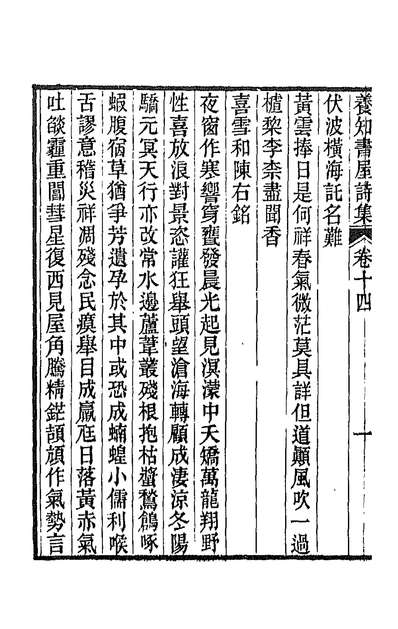 養知書屋詩集　卷十四　一
伏波橫海託名難
黃雲捧日是何祥春氣微茫莫具詳但道顚風吹一過
樝棃李柰盡聞香
喜雪和陳右銘
夜窗作寒響穹甕發晨光起見溟濛中天嬌萬龍翔野
性喜放浪對景恣讙狂舉頭望滄海轉顧成淒涼冬陽
驕元冥天行亦改常水邊蘆葦叢殘根抱枯螿鶖鶬啄
蝦腹宿草猶爭芳遺孕於其中或恐成蝻蝗小儒利喉
舌謬意稽災祥凋殘念民瘼舉目成羸尫日落黃赤氣
吐燄霾重閶彗星復西見屋角騰精鋩頡頏作氣勢言